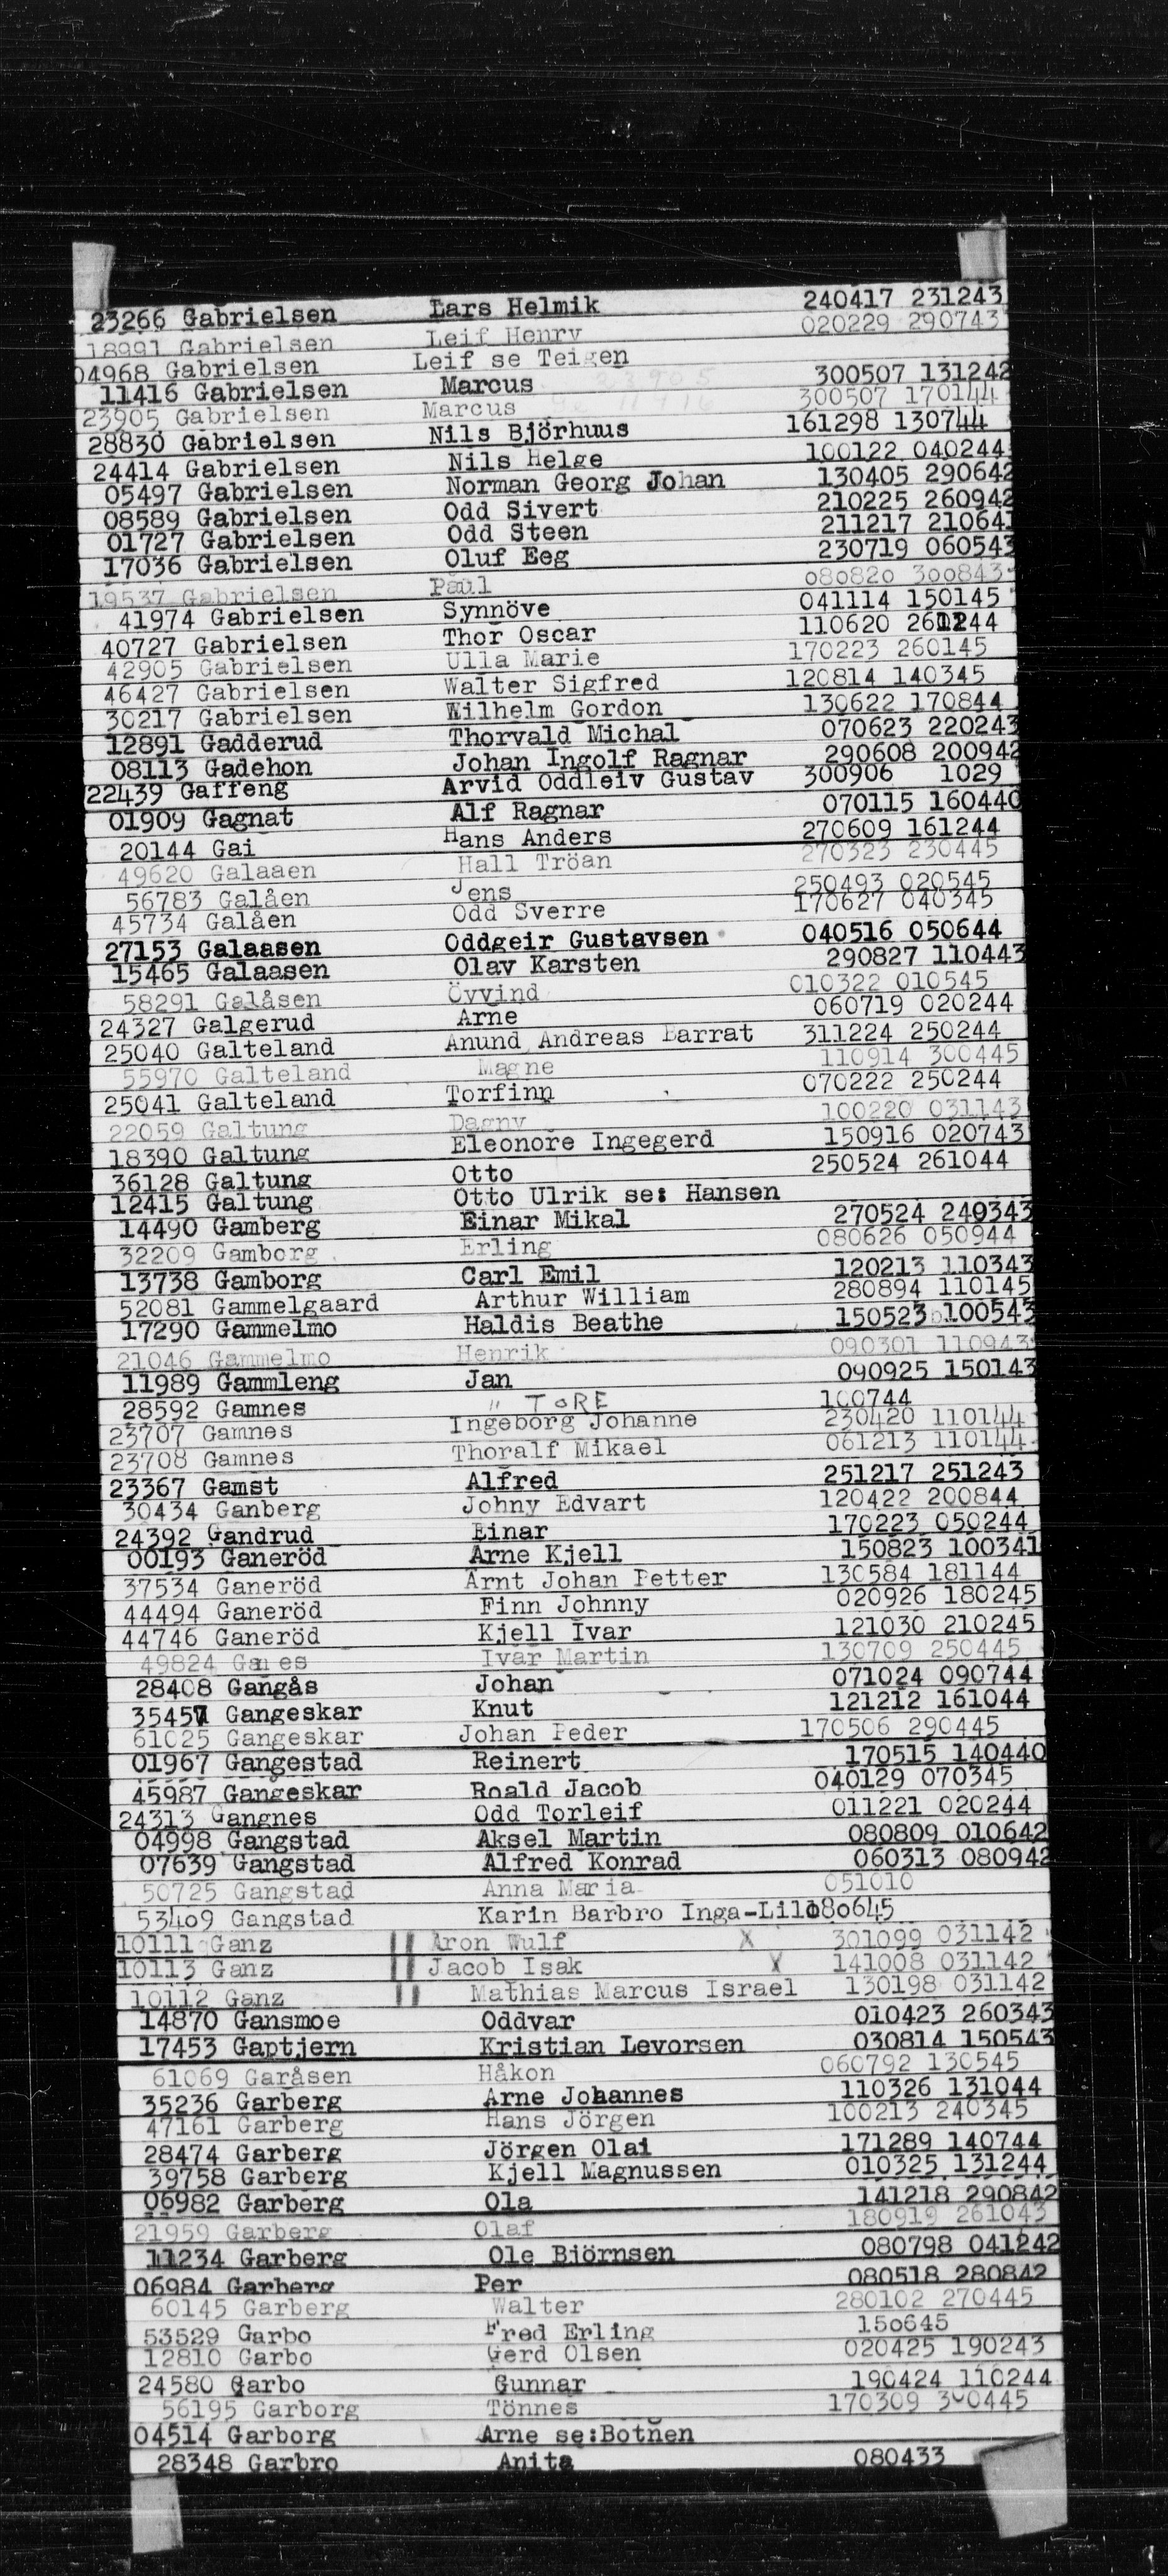 23266 Gabrielsen Lars Helmik 240417 231243
18991 Gabrielsen Leif Henry 020229 290743
04968 Gabrielsen Leif se Teigen
11416 Gabrielsen Marcus 23905 300507 131242
23905 Gabrielsen Marcus se 11416 300507 170144
28830 Gabrielsen Nils Björhuus 161298 130744
24414 Gabrielsen Nils Helge 100122 040244
05497 Gabrielsen Norman Georg Johan 130405 290642
08589 Gabrielsen Odd Sivert 210225 260942
01727 Gabrielsen Odd Steen 211217
17036 Gabrielsen Oluf Eeg 230719 060543
19537 Gabrielsen Paul 080820 300843
41974 Gabrielsen Synnöve 041114 150145
40727 Gabrielsen Thor Oscar 110620 261244
42905 Gabrielsen Ulla Marie 170223 260145
46427 Gabrielsen Walter Sigfred 120814 140345
30217 Gabrielsen Wilhelm Gordon 130622 170844
12891 Gadderud Thorvald Michal 070623 220243
08113 Gadehon Johan Ingolf Ragnar 290608 200942
22439 Gaffeng Arvid Oddleiv Gustav 300906 1029
01909 Gagnat Alf Ragnar 070115 160440
20144 Gai Hans Anders 270609 161244
49620 Galaaen Hall Tröan 270323 230445
56783 Galåen Jens 250493 020545
45734 Galåen Odd Sverre 170627 040345
27153 Galaasen Oddgeir Gustavsen 040516 050644
15465 Galaasen Olav Karsten 290827 110443
58291 Galåsen Öyvind 010322 010545
24327 Galgerud Arne 060719 020244
25040 Galteland Anund Andreas Barrat 311224 250244
55970 Galteland Magne 110914 300445
25041 Galteland Torfinn 070222 250244
22059 Galtung Dagny 100220 031143
18390 Galtung Eleonore Ingegerd 150916 020743
36128 Galtung Otto 250524 261044
12415 Galtung Otto Ulrik se: Hansen
14490 Gamberg Einar Mikal 270524 240343
32209 Gamborg Erling 080626 050944
13738 Gamborg Carl Emil 120213 110343
52081 Gammelgaard Arthur William 280894 110145
17290 Gammelmo Haldis Beathe 150523 100543
21046 Gammelmo Henrik 090301 110943
11989 Gammleng Jan 090925 150143
28592 Gamnes " TORE 100744
23707 Gamnes Ingeborg Johanne 230420 110144
23708 Gamnes Thoralf Mikael 061213 110144
23367 Gamst Alfred 251217 251243
30434 Ganberg Johny Edvart 120422 200844
24392 Gandrud Einar 170223 050244
00193 Ganeröd Arne Kjell 150823 100341
37534 Ganeröd Arnt Johan Petter 130584 181144
44494 Ganeröd Finn Johnny 020926 180245
44746 Ganeröd Kjell Ivar 121030 210245
49824 Ivar Martin 130709 250445
28408 Gangås Johan 071024 090744
35457 Gangeskar Knut 121212 161044
61025 Gangeskar Johan Peder 170506 290445
01967 Gangestad Reinert 170515 140440
45987 Gangeskar Roald Jacob 040129 070345
24313 Gangnes Odd Torleif 011221 020244
04998 Gangstad Aksel Martin 080809 010642
07639 Gangstad Alfred Konrad 060313 080942
50725 Gangstad Anna Maria 051010
53409 Gangstad Karin Barbro
10111 Ganz || Aron Wulf X 301099 031142
10113 Ganz || Jacob Isak X 141008 031142
10112 Ganz || Mathias Marcus Israel 130198 031142
14870 Gansmoe Oddvar 010423 260343
17453 Gaptjern Kristian Levorsen 030814 150543
61069 Garåsen Håkon 060792 130545
35236 Garberg Arne Johannes 110326 131044
47161 Garberg Hans Jörgen 100213 240345
28474 Garberg Jörgen Olai 171289 140744
39758 Garberg Kjell Magnussen 010325 131244
06982 Garberg Ola 141218 290842
21959 Garberg Olaf 180919 261043
11234 Garberg Ole Björnsen 080798 041242
06984 Garberg Per 080518 280842
60145 Garberg Walter 280102 270445
53529 Garbo Fred Erling 150645
12810 Garbo Gerd Olsen 020425 190243
24580 Garbo Gunnar 190424 110244
56195 Garborg Tönnes 170309 300445
04514 Garborg Arne se:Botnen
28348 Garbro Anita 080433